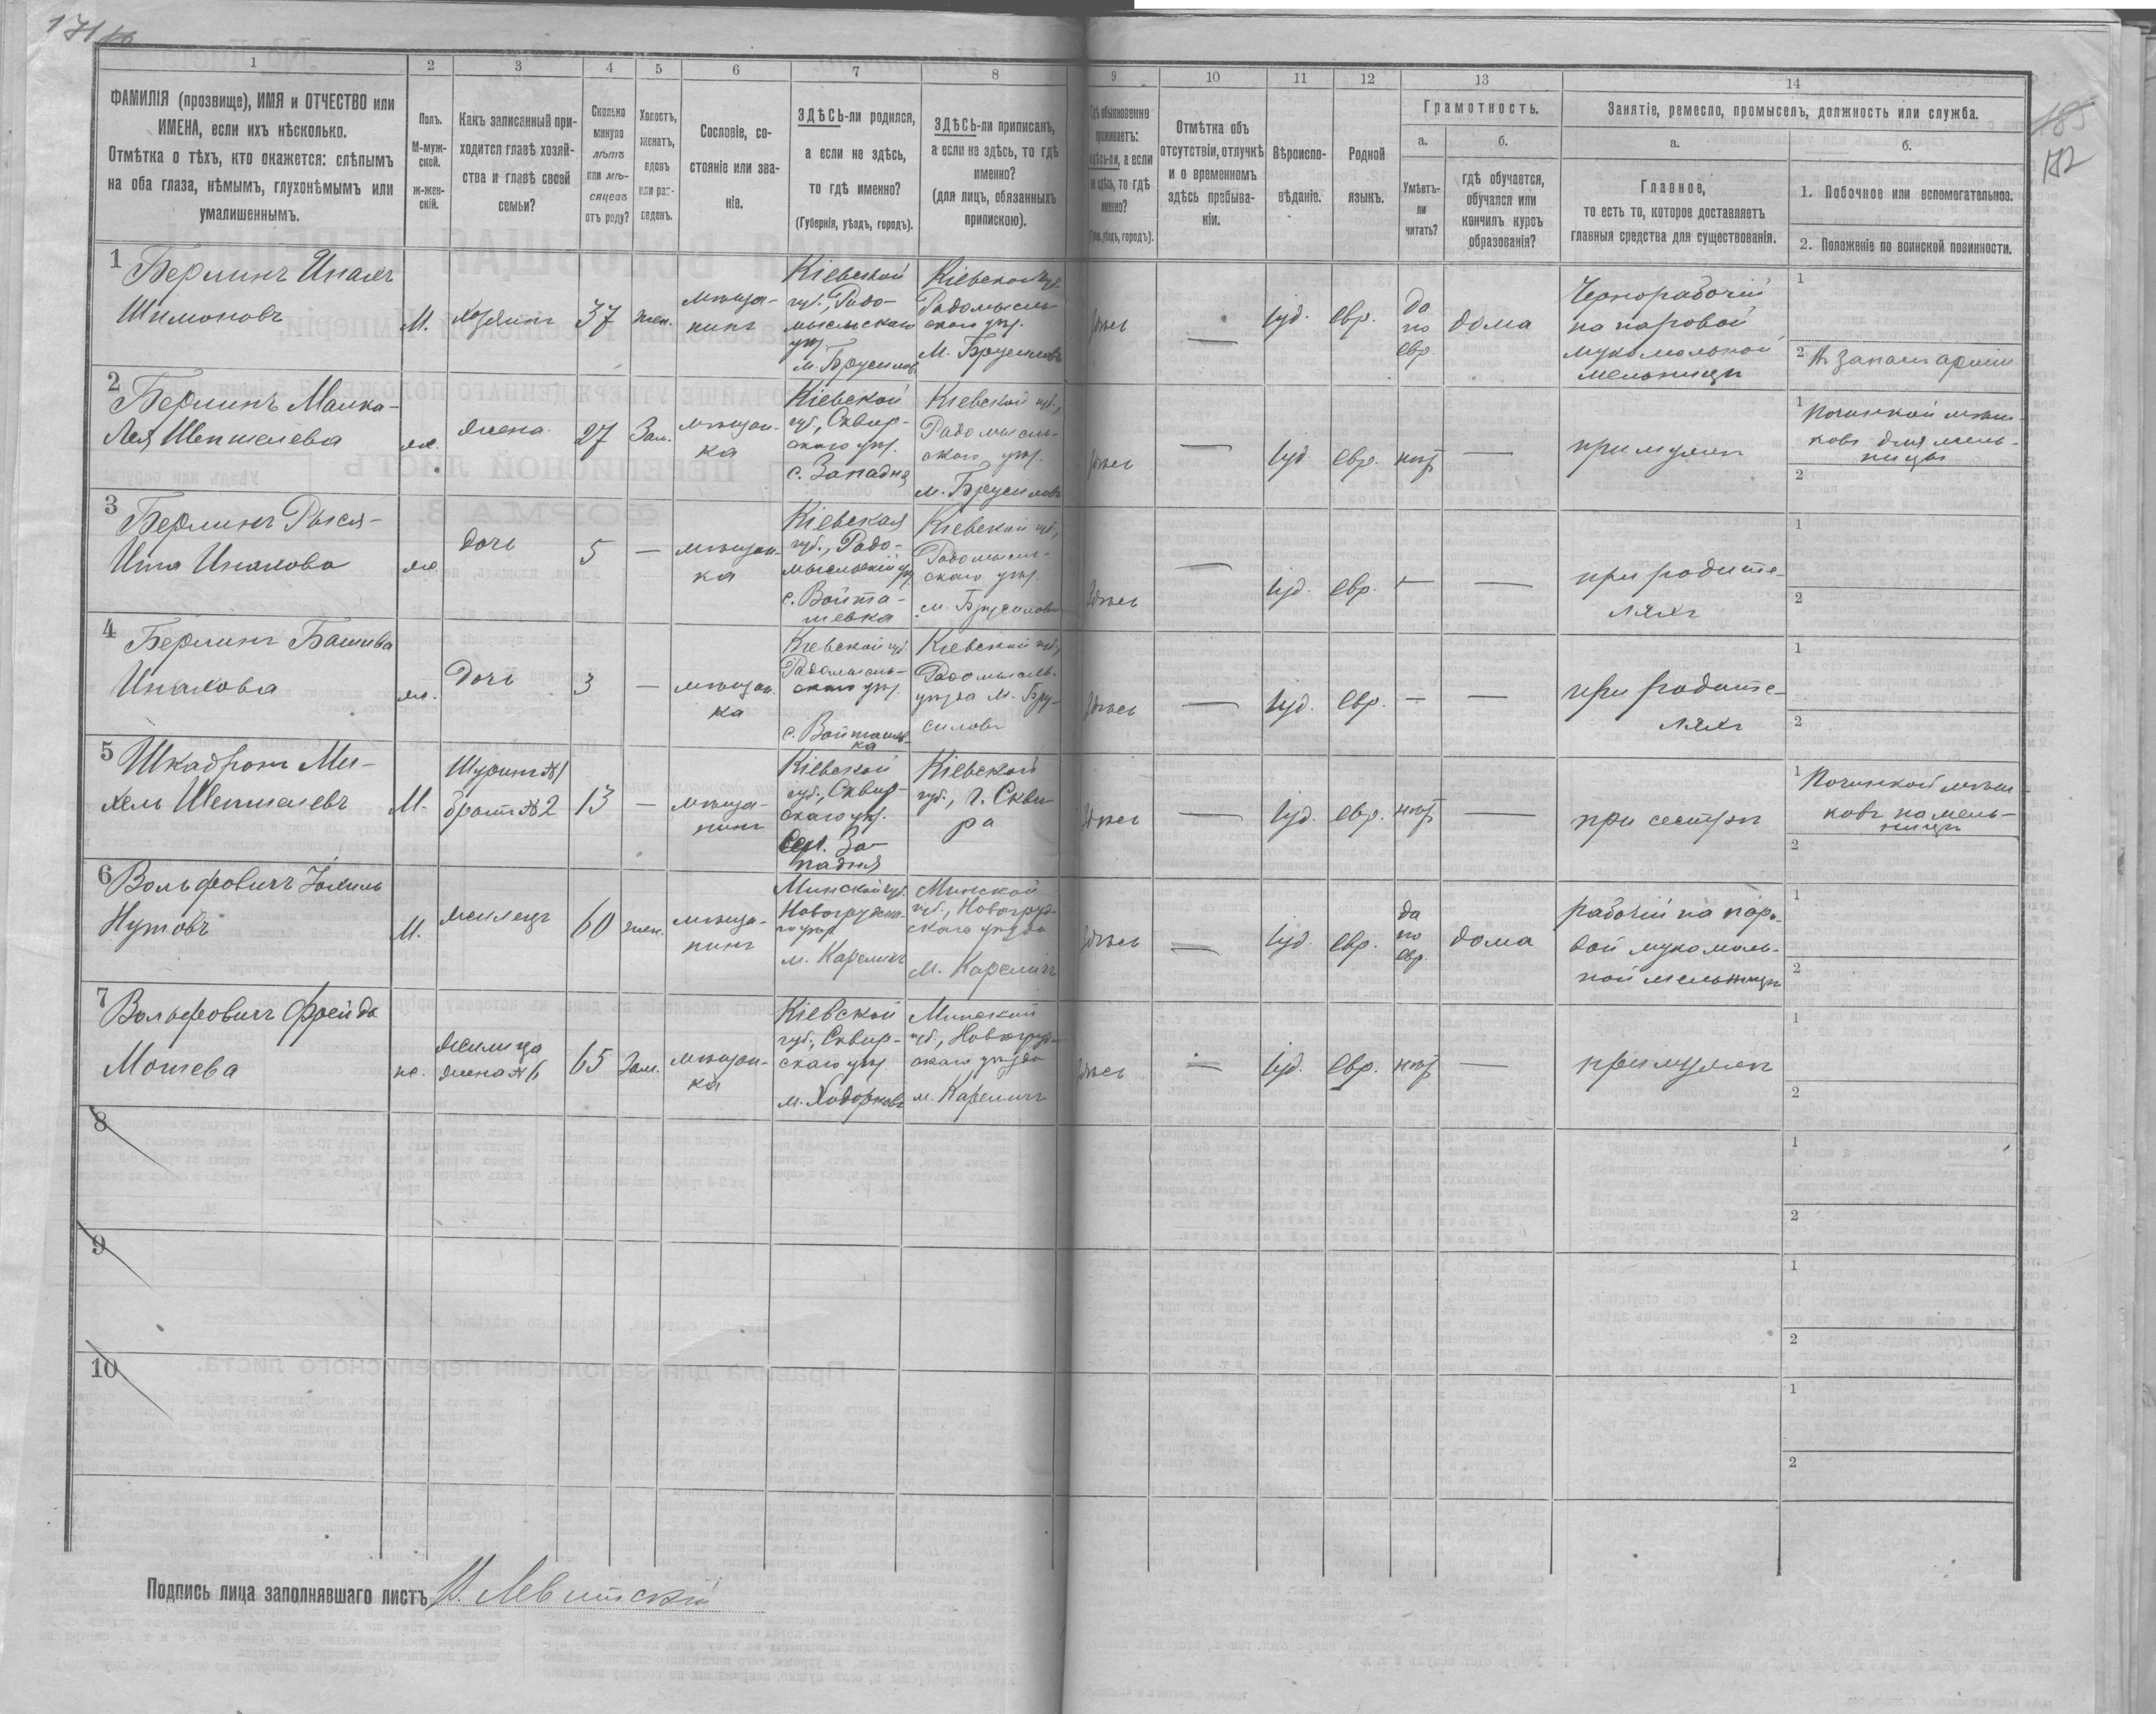 1 2 3 4 5 6 7 8 9 10 11 12 13 14
ФАМИЛІЯ (прозвище), ИМЯ и ОТЧЕСТВО или
ИМЕНА, если ихъ нѣсколько.
Отмѣтка о тѣхъ, кто окажется: слѣпымъ
на оба глаза, нѣмымъ, глухонѣмымъ или
умалишеннымъ.
Полъ.
М-муж-
ской.
ж-жен-
скій.
Какъ записанный при-
ходится главѣ хозяй-
ства и главѣ своей
семьи?
Сколько
минуло
лѣтъ
или мѣ-
сяцевъ
отъ роду?
Холостъ,
женатъ,
вдовъ
или раз-
веденъ.
Сословіе, со-
стояніе или зва-
ніе.
ЗДѢСЬ-ли родился,
а если не здѣсь,
то гдѣ именно?
(Губернія, уѣздъ, городъ).
ЗДѢСЬ-ли приписанъ,
а если не здѣсь, то гдѣ
именно?
(для лицъ, обязанныхъ
припискою).
Гдѣ обыкновенно
проживаетъ:
здѣсь-ли, а если
не здѣсь, то гдѣ
именно?
(Губ., уѣздъ, городъ).
Отмѣтка объ
отсутствіи, отлучкѣ
и о временномъ
здѣсь пребыва-
ніи.
Вѣроиспо-
вѣданіе.
Родной
языкъ.
Грамотность.
а.
Умѣетъ-
ли
читать?
б.
гдѣ обучается,
обучался или
кончилъ курсъ
образованія?
Занятіе, ремесло, промыселъ, должность или служба.
а.
Главное,
то есть то, которое доставляетъ
главныя средства для существованія.
б.
1. Побочное или вспомогательное.
2. Положеніе по воинской повинности.
185
182
1
Берлинъ
Шимоновъ
М.
хозяинъ
37
жен.
мѣща-
нинъ
Кіевской
губ., Радо-
мысльскаго
уѣз.
м. Брусилов
Кіевской губ.
Радомысль
скаго уѣз.
М. Брусиловъ
здѣсь
—
Іуд.
Евр.
да
по
евр
дома
Чернорабочій
на паровой
мукомольной
мельницѣ
1
2 Въ запасѣ арміи
2
Берлинъ Малка-
Лея Шепшелева
ж.
жена
27
Зам.
мѣщан-
ка
Кіевской
губ., Сквир-
скаго уѣз.
с. Западня
Кіевской губ.,
Радомысль-
скаго уѣз.
м. Брусиловъ
здѣсь
—
Іуд.
Евр.
нѣт
—
при мужѣ
1 Починкой мѣш-
ковъ для мель-
ницы
2
3
Берлинъ Рыся-
ж.
дочь
5
—
мѣщан-
ка
Кіевская
губ., Радо-
мысльскій уѣз
с. Войта-
шевка
Кіевской губ,
Радомысль-
скаго уѣз.
м. Брусиловъ
Здѣсь
—
Іуд.
Евр.
—
—
при родите-
ляхъ
1
2
4
Берлинъ Башива
ж.
Дочь
3
—
мѣщан.
ка
Кіевской губ.
Радомысль-
скаго уѣз.
с. Войташев-
ка
Кіевской губ.,
Радомысль.
уѣзда М. Бру-
силовъ
Здѣсь
—
Іуд.
Евр.
—
—
при родите-
ляхъ
1
2
5
Шкадрон Ми-
хель Шепшелевъ
М.
Шуринъ №1
братъ №2
13
—
мѣща-
нинъ
Кіевской
губ., Сквир-
скаго уѣз.
Сел. За-
падня
Кіевской
губ., г. Скви-
ра
Здѣсь
—
Іуд.
Евр.
нѣт
—
при сестрѣ
1 Починкой мѣш-
ковъ на мель-
ницѣ
2
6
Вольфовичъ
Нутовъ
М.
жилецъ
60
жен.
мѣща-
нинъ
Минской губ.
Новогрудска-
го уѣз
м. Карелич
Минской
губ., Новогруд-
скаго уѣзда
М. Карелич
Здѣсь
—
Іуд.
Евр.
да
по
евр.
дома
рабочій на паро-
вой мукомоль-
ной мельницѣ
1
2
7
Вольфовичъ Фрейда
Мошева
ж.
жилица
жена №6
65
Зам.
мѣщан-
ка
Кіевской
губ., Сквир-
скаго уѣз.
м. Ходорковъ
Минской
губ., Новогруд-
скаго уѣзда
м. Карелич
здѣсь
—
Іуд.
Евр.
нѣт
—
при мужѣ
1
2
8
1
2
9
1
2
10
1
2
Подпись лица заполнявшаго листъ Левитскій